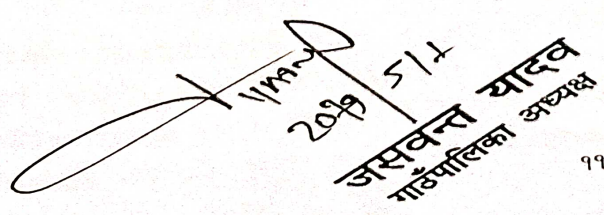 2079/5/1
जसवन्त यादव
गाउँपालिका अध्यक्ष
११